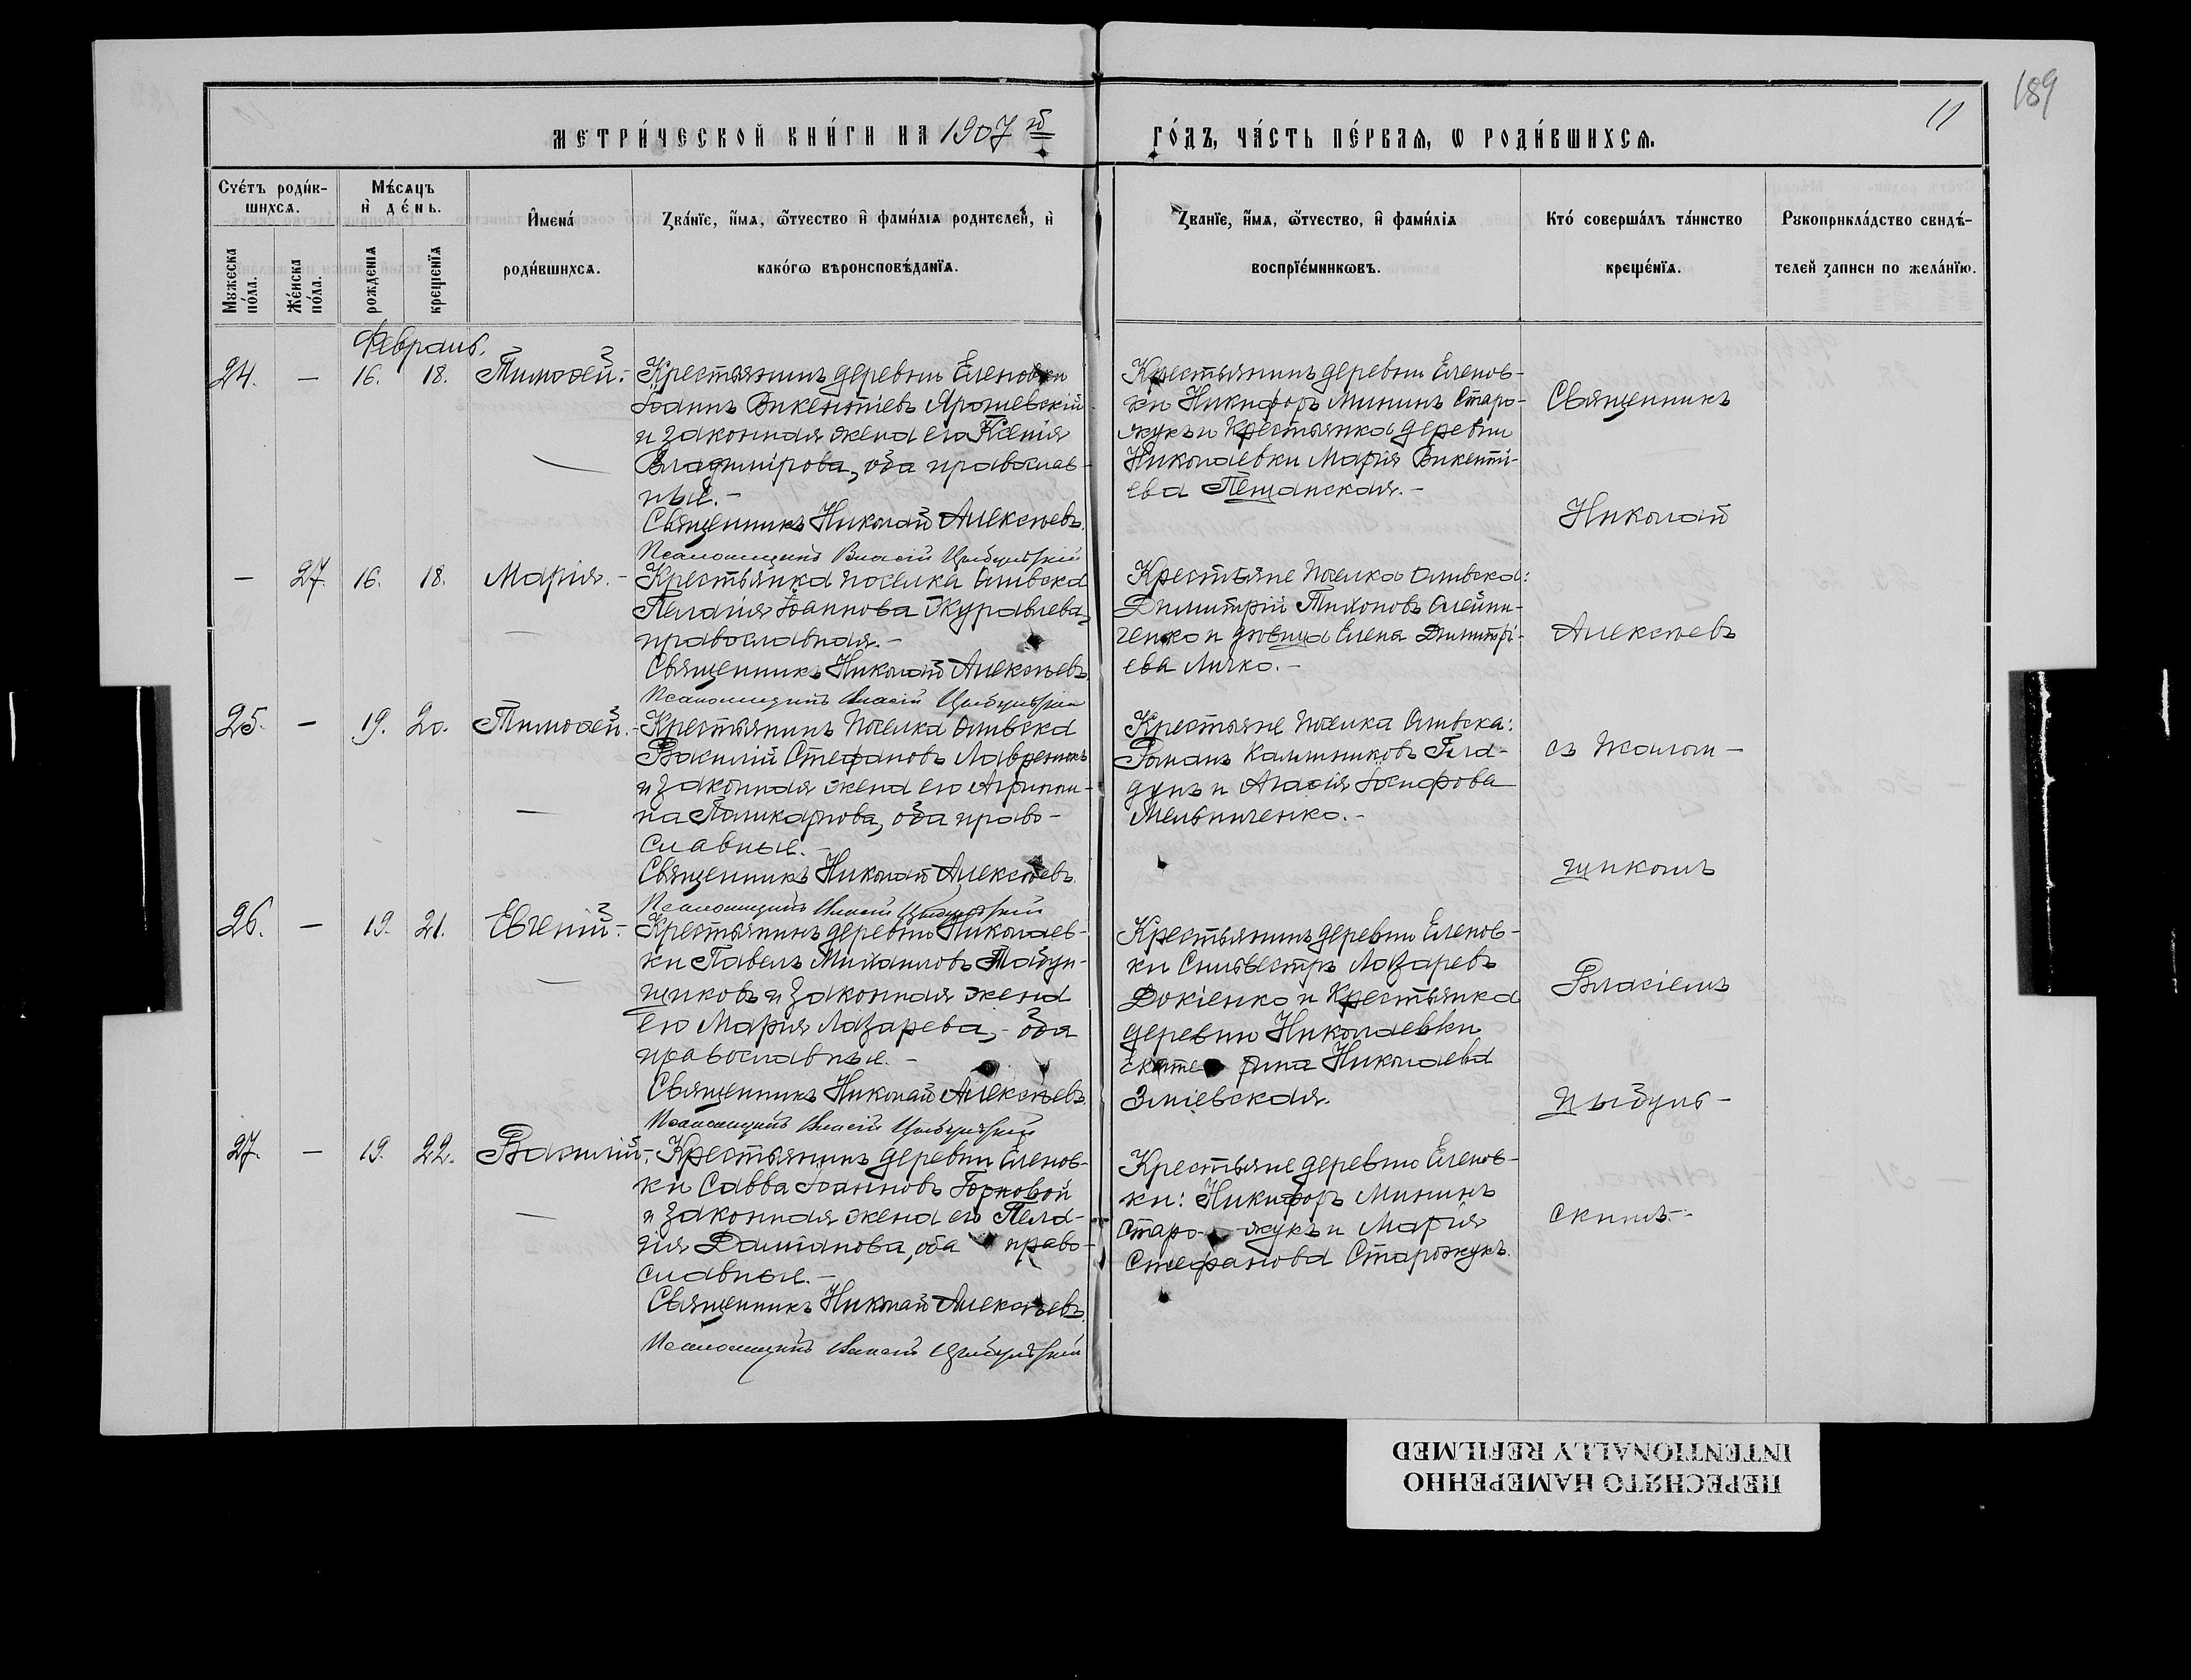 189
11
МЕТРИ́ЧЕСКОЙ КНИ́ГИ НА 1907 й
ГО́ДЪ, ЧА́СТЬ ПЕ́РВАѦ, Ѡ РОДИ́ВШИХСѦ.
Счѐтъ роди́в-
шихсѧ.
Мужеска по́ла.
Же́нска по́ла.
Мѣ́сѧцъ
и҆ де́нь.
рожденіѧ
крещеніѧ
И҆мена̀
роди́вшихсѧ.
Зва́нїе, и҆́мѧ, ѻ҆́тчество и҆ фами́лїѧ родителей, и҆
како́гѡ вѣроисповѣ́данїѧ.
Зва́нїе, и҆́мѧ, ѻ҆́тчество, и҆ фами́лїѧ
воспрїе́мникѡвъ.
Кто́ соверша́лъ та́инство
креще́нїѧ.
Рꙋкоприкла́дство свидѣ́-
телей записи по жела́нїю.
Февраль.
24. — 16. 18. Тимоѳей.-
Крестьянинъ деревни Еленовки
Іоаннъ Викентіевъ Ярошевскій
и законная жена его Ксенія
Владимірова, оба православ-
ные.-
Священникъ Николай Алексѣевъ.
Псаломщикъ Власій Цыбульскій
Крестьянинъ деревни Еленов-
ки Никифоръ Мининъ Старо-
жукъ и Крестьянка деревни
Николаевки Марія Викенті-
ева Пещанская.-
— 27. 16. 18. Марія.-
Крестьянка поселка Ольвска
Пелагія Іоаннова Журавлева,
православная.-
Священникъ Николай Алексѣевъ
Псаломщикъ Власій Цыбульскій
Крестьяне поселка Ольвска:
Димитрій Тихоновъ Олейни-
ченко и дѣвица Елена Димитрі-
ева Лячко.-
25. — 19. 20. Тимоѳей.-
Крестьянинъ поселка Ольвска
Василій Стефановъ Лавренюкъ
и законная жена его Агриппи-
на Поликарпова, оба право-
славные.-
Священникъ Николай Алексѣевъ
Псаломщикъ Власій Цыбульскій
Крестьяне поселка Ольвска:
Романъ Калинниковъ Гла-
дунъ и Агаѳія Іосифова
Мельниченко.-
26. — 19. 21. Евгеній.-
Крестьянинъ деревни Николаев-
ки Павелъ Михаиловъ Табун-
щиковъ и законная жена
его Марія Лазарева, оба
православные.-
Священникъ Николай Алексѣевъ
Псаломщикъ Власій Цыбульскій
Крестьянинъ деревни Еленов-
ки Сильвестръ Лазаревъ
Докіенко и Крестьянка
деревни Николаевки
Екате рина Николаева
Зміевская.
27. — 19. 22. Василій.-
Крестьянинъ деревни Еленов-
ки Савва Іоанновъ Горковой
и законная жена его Пела-
гія Даміанова, оба право-
славные.-
Священникъ Николай Алексѣевъ
Псаломщикъ Власій Цыбульскій
Крестьяне деревни Еленов-
ки: Никифоръ Мининъ
Старо- жукъ и Марія
Стефанова Старожукъ.
Священникъ
Николай
Алексѣевъ
съ псалом-
щикомъ
Власіемъ
Цыбуль-
скимъ.-
ПЕРЕСНЯТО НАМЕРЕННО
INTENTIONALLY REFILMED